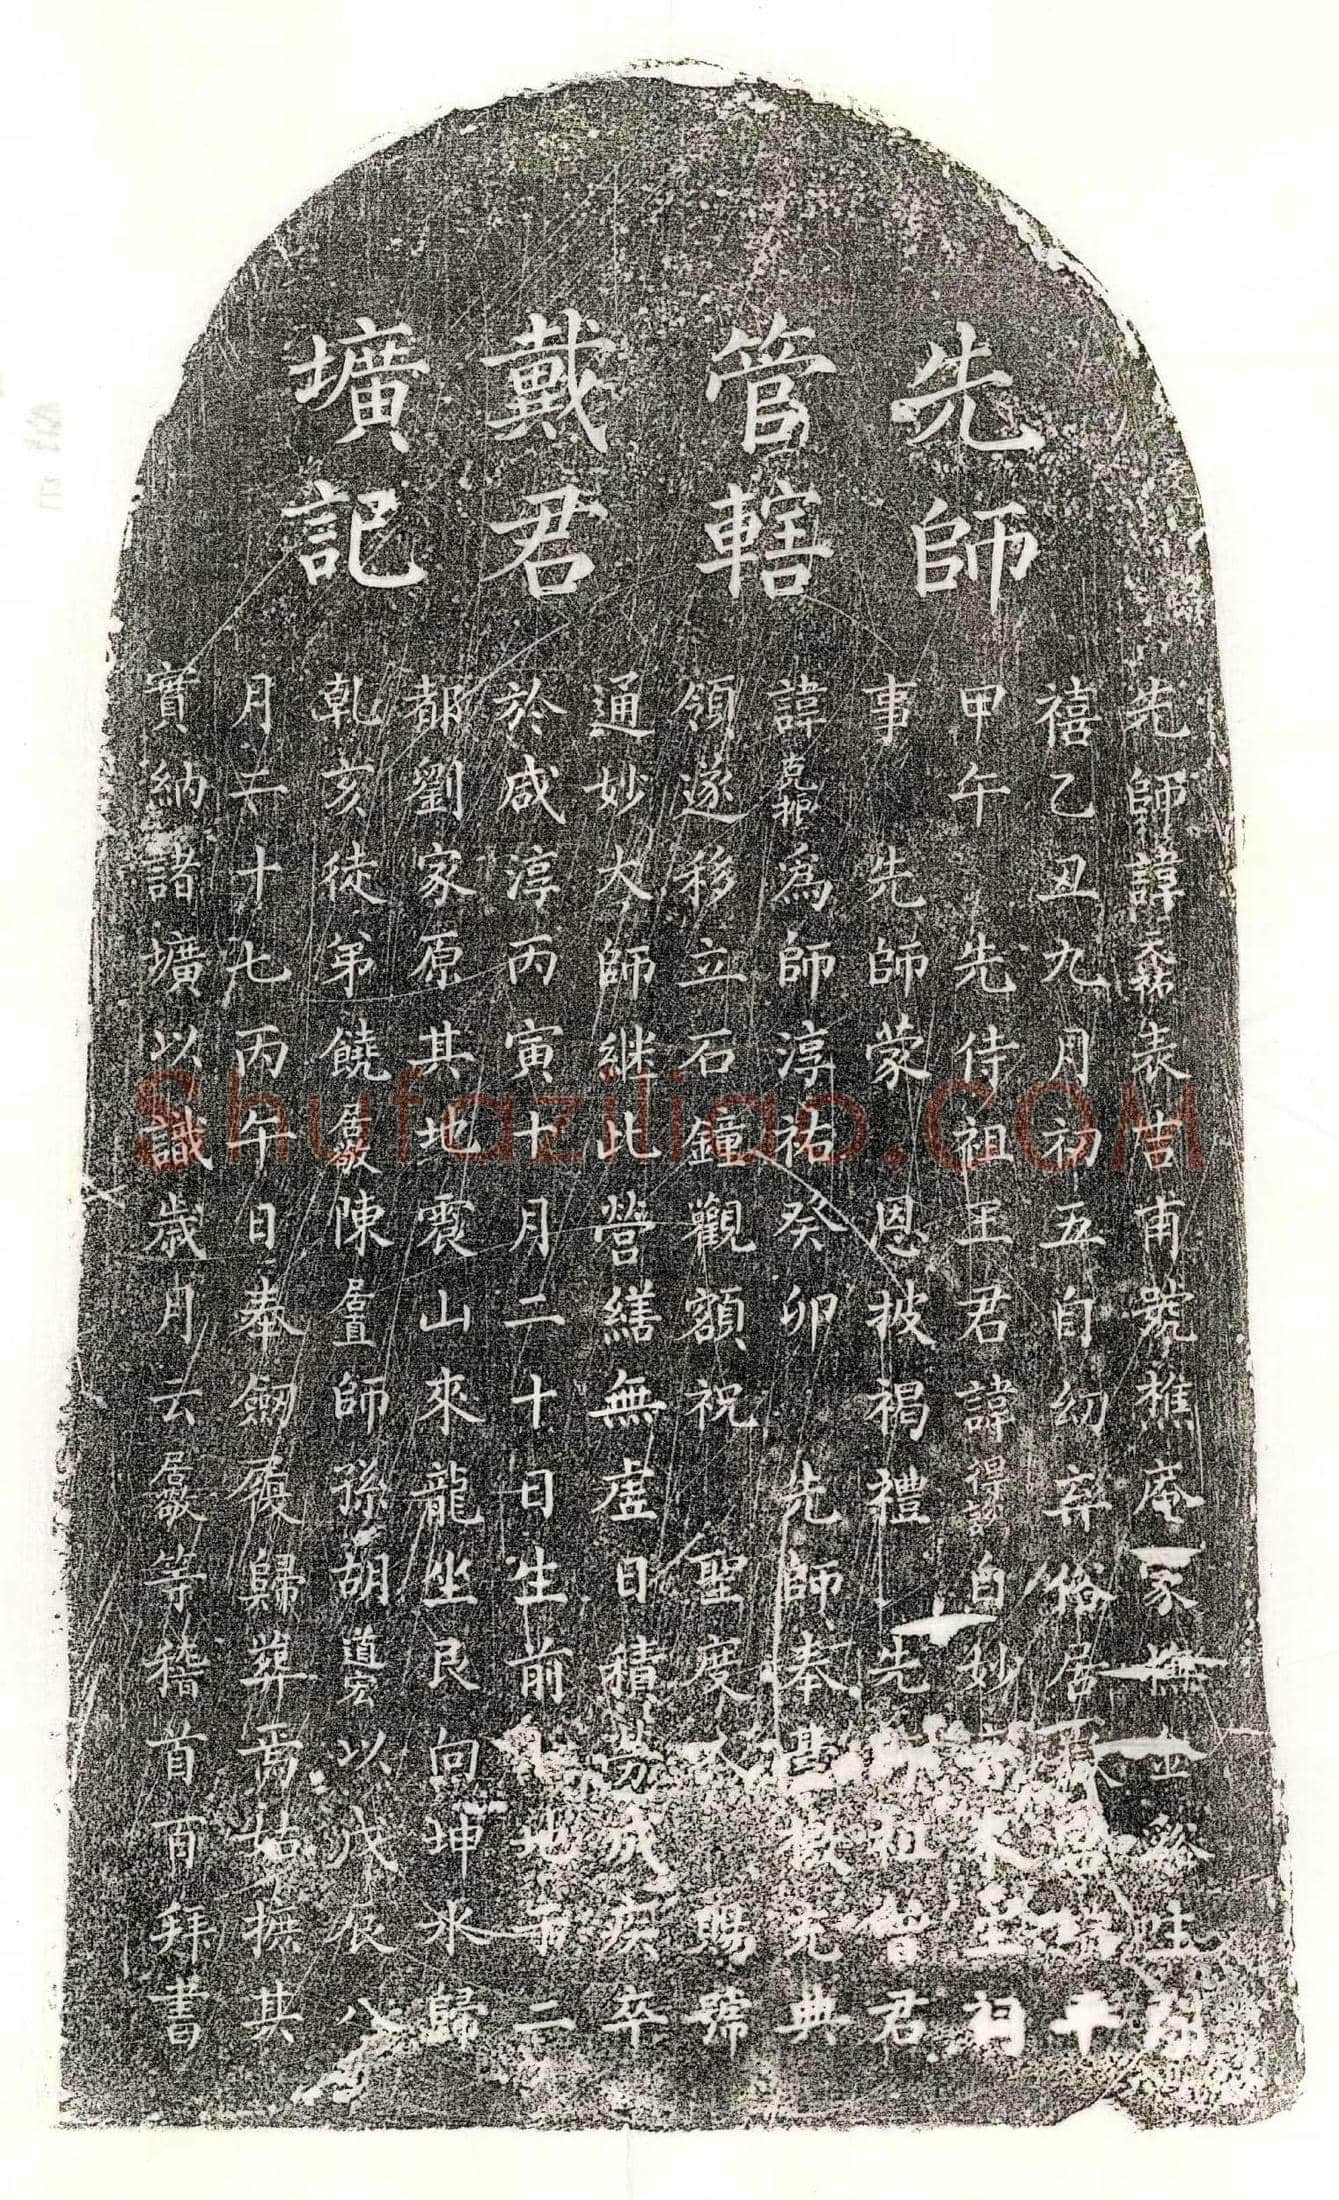 先師
管轄
戴君
壙記
先師諱天□表吉甫號樵庵家撫之□生嘉
禧乙丑九月初五自幼弃俗居□□□十
甲午先侍祖王君諱得□自妙□□堂祠
事先師蒙恩披褐禮先師祖曾君
諱□□為師淳祐癸卯先師奉甚嚴先典
領遂移立石鐘觀額祝聖度人賜號
通妙大師継此營繕無虛日積勞成疾卒
於咸淳丙寅十月二十日生前□地于二
都劉家原其地震山來龍坐艮向坤水歸
乾亥徒弟饒居敬陳居直師孫胡道宏以戊辰八
月二十七丙午日奉劒履歸葬焉姑摭其
實納諸壙以識歲月云居敬等稽首百拜書
Shufaziliao.COM